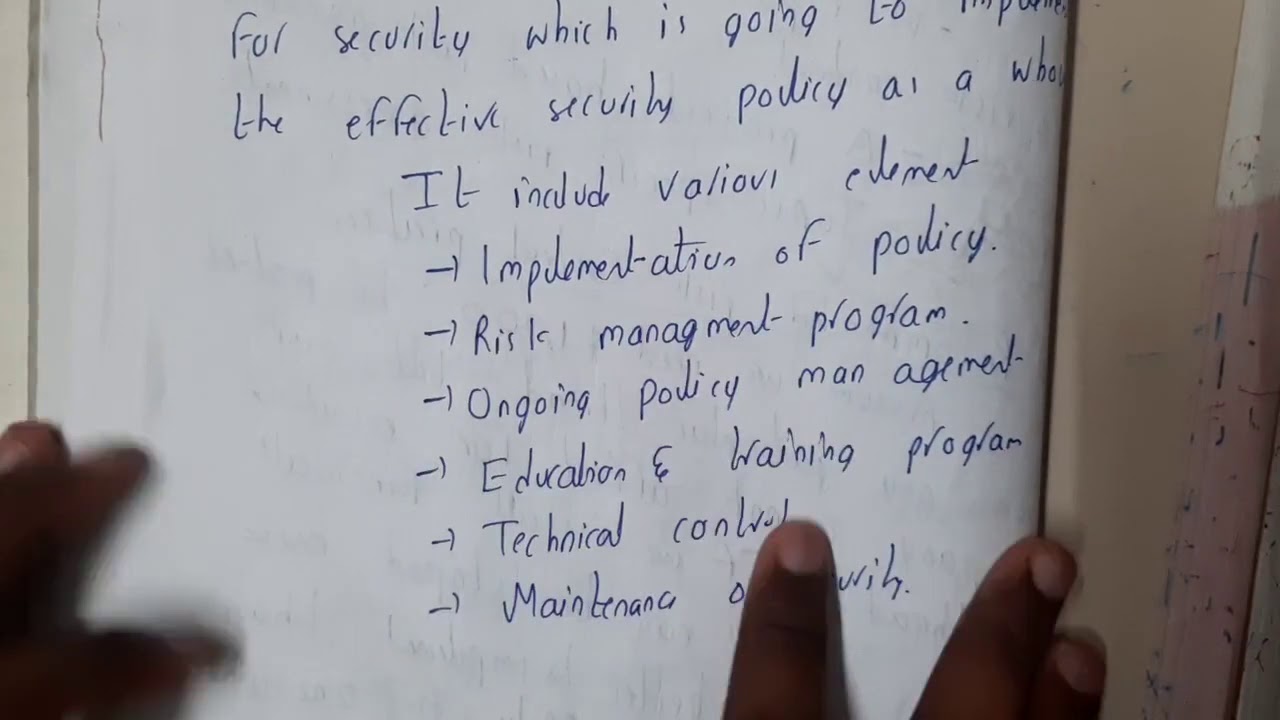 For security which is going to
the effective security policy as a
It include various element
→ Implementation of policy.
→ Risk managment program.
→ Ongoing policy man agement
→ Education & training program
→ Technical control
→ Maintenance